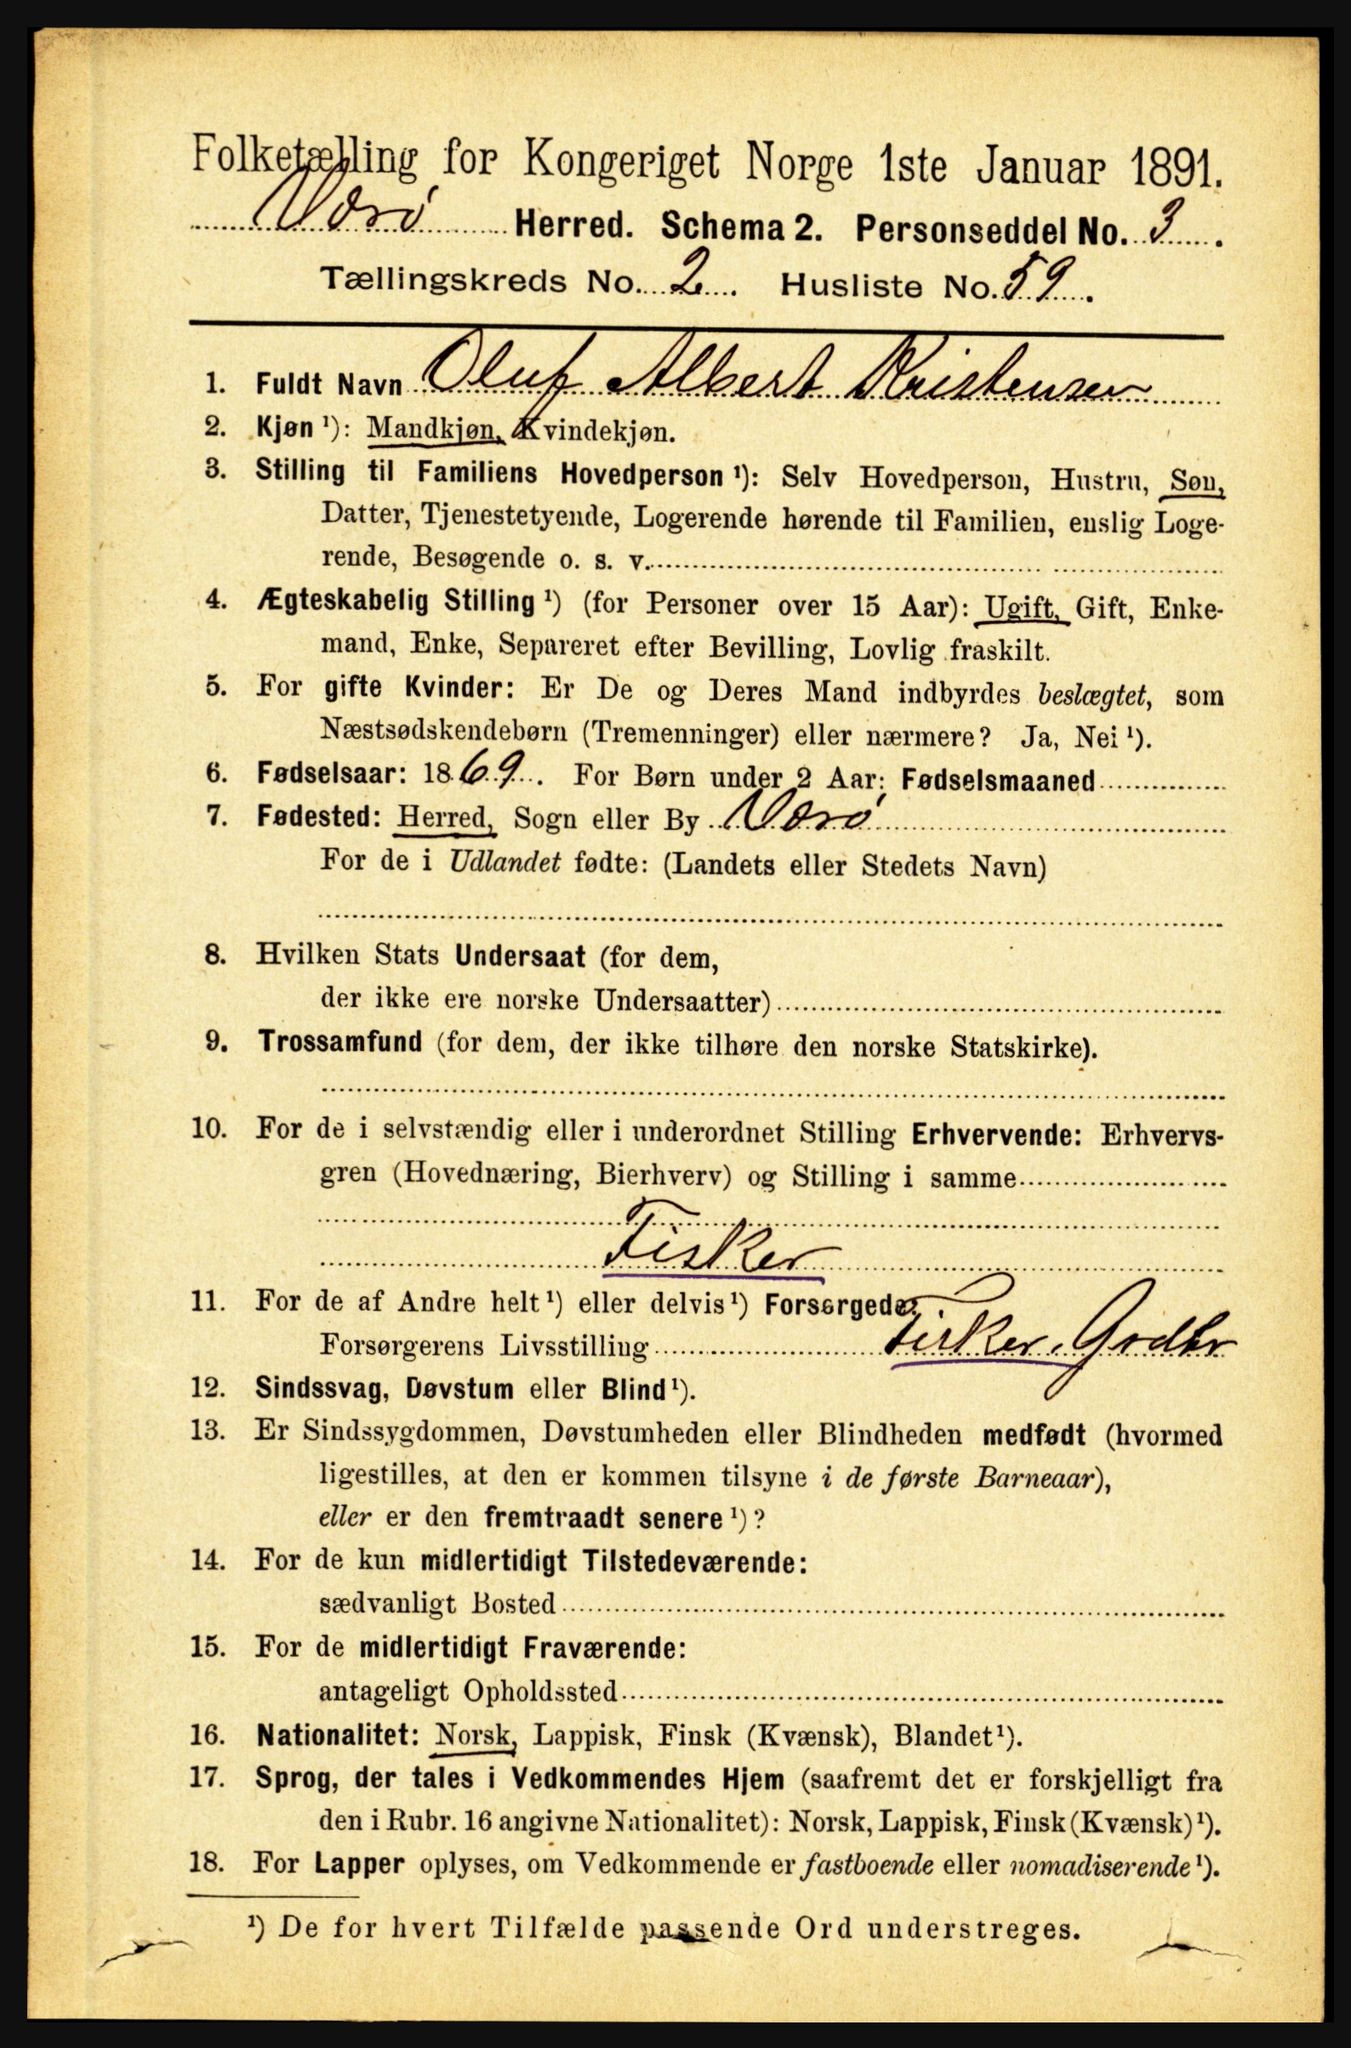 Folketælling for Kongeriget Norge 1ste Januar 1891.
Værø Herred. Schema 2. Personseddel No. 3.
Tællingskreds No. 2. Husliste No. 59.
1. Fuldt Navn Oluf Albert Kristensen
2. Kjøn ¹): Mandkjøn, Kvindekjøn.
3. Stilling til Familiens Hovedperson ¹): Selv Hovedperson, Hustru, Søn,
Datter, Tjenestetyende, Logerende hørende til Familien, enslig Loge-
rende, Besøgende o. s. v.
4. Ægteskabelig Stilling ¹) (for Personer over 15 Aar): Ugift, Gift, Enke-
mand, Enke, Separeret efter Bevilling, Lovlig fraskilt.
5. For gifte Kvinder: Er De og Deres Mand indbyrdes beslægtet, som
Næstsødskendebørn (Tremenninger) eller nærmere? Ja, Nei ¹).
6. Fødselsaar: 1869. For Børn under 2 Aar: Fødselsmaaned
7. Fødested: Herred, Sogn eller By Værø
For de i Udlandet fødte: (Landets eller Stedets Navn)
8. Hvilken Stats Undersaat (for dem,
der ikke ere norske Undersaatter)
9. Trossamfund (for dem, der ikke tilhøre den norske Statskirke).
10. For de i selvstændig eller i underordnet Stilling Erhvervende: Erhvervs-
gren (Hovednæring, Bierhverv) og Stilling i samme
Fisker
11. For de af Andre helt ¹) eller delvis ¹) Forsørgede:
Forsørgerens Livsstilling Fisker, Grdbr
12. Sindssvag, Døvstum eller Blind ¹).
13. Er Sindssygdommen, Døvstumheden eller Blindheden medfødt (hvormed
ligestilles, at den er kommen tilsyne i de første Barneaar),
eller er den fremtraadt senere ¹)?
14. For de kun midlertidigt Tilstedeværende:
sædvanligt Bosted
15. For de midlertidigt Fraværende:
antageligt Opholdssted
16. Nationalitet: Norsk, Lappisk, Finsk (Kvænsk), Blandet ¹).
17. Sprog, der tales i Vedkommendes Hjem (saafremt det er forskjelligt fra
den i Rubr. 16 angivne Nationalitet): Norsk, Lappisk, Finsk (Kvænsk) ¹).
18. For Lapper oplyses, om Vedkommende er fastboende eller nomadiserende ¹).
¹) De for hvert Tilfælde passende Ord understreges.